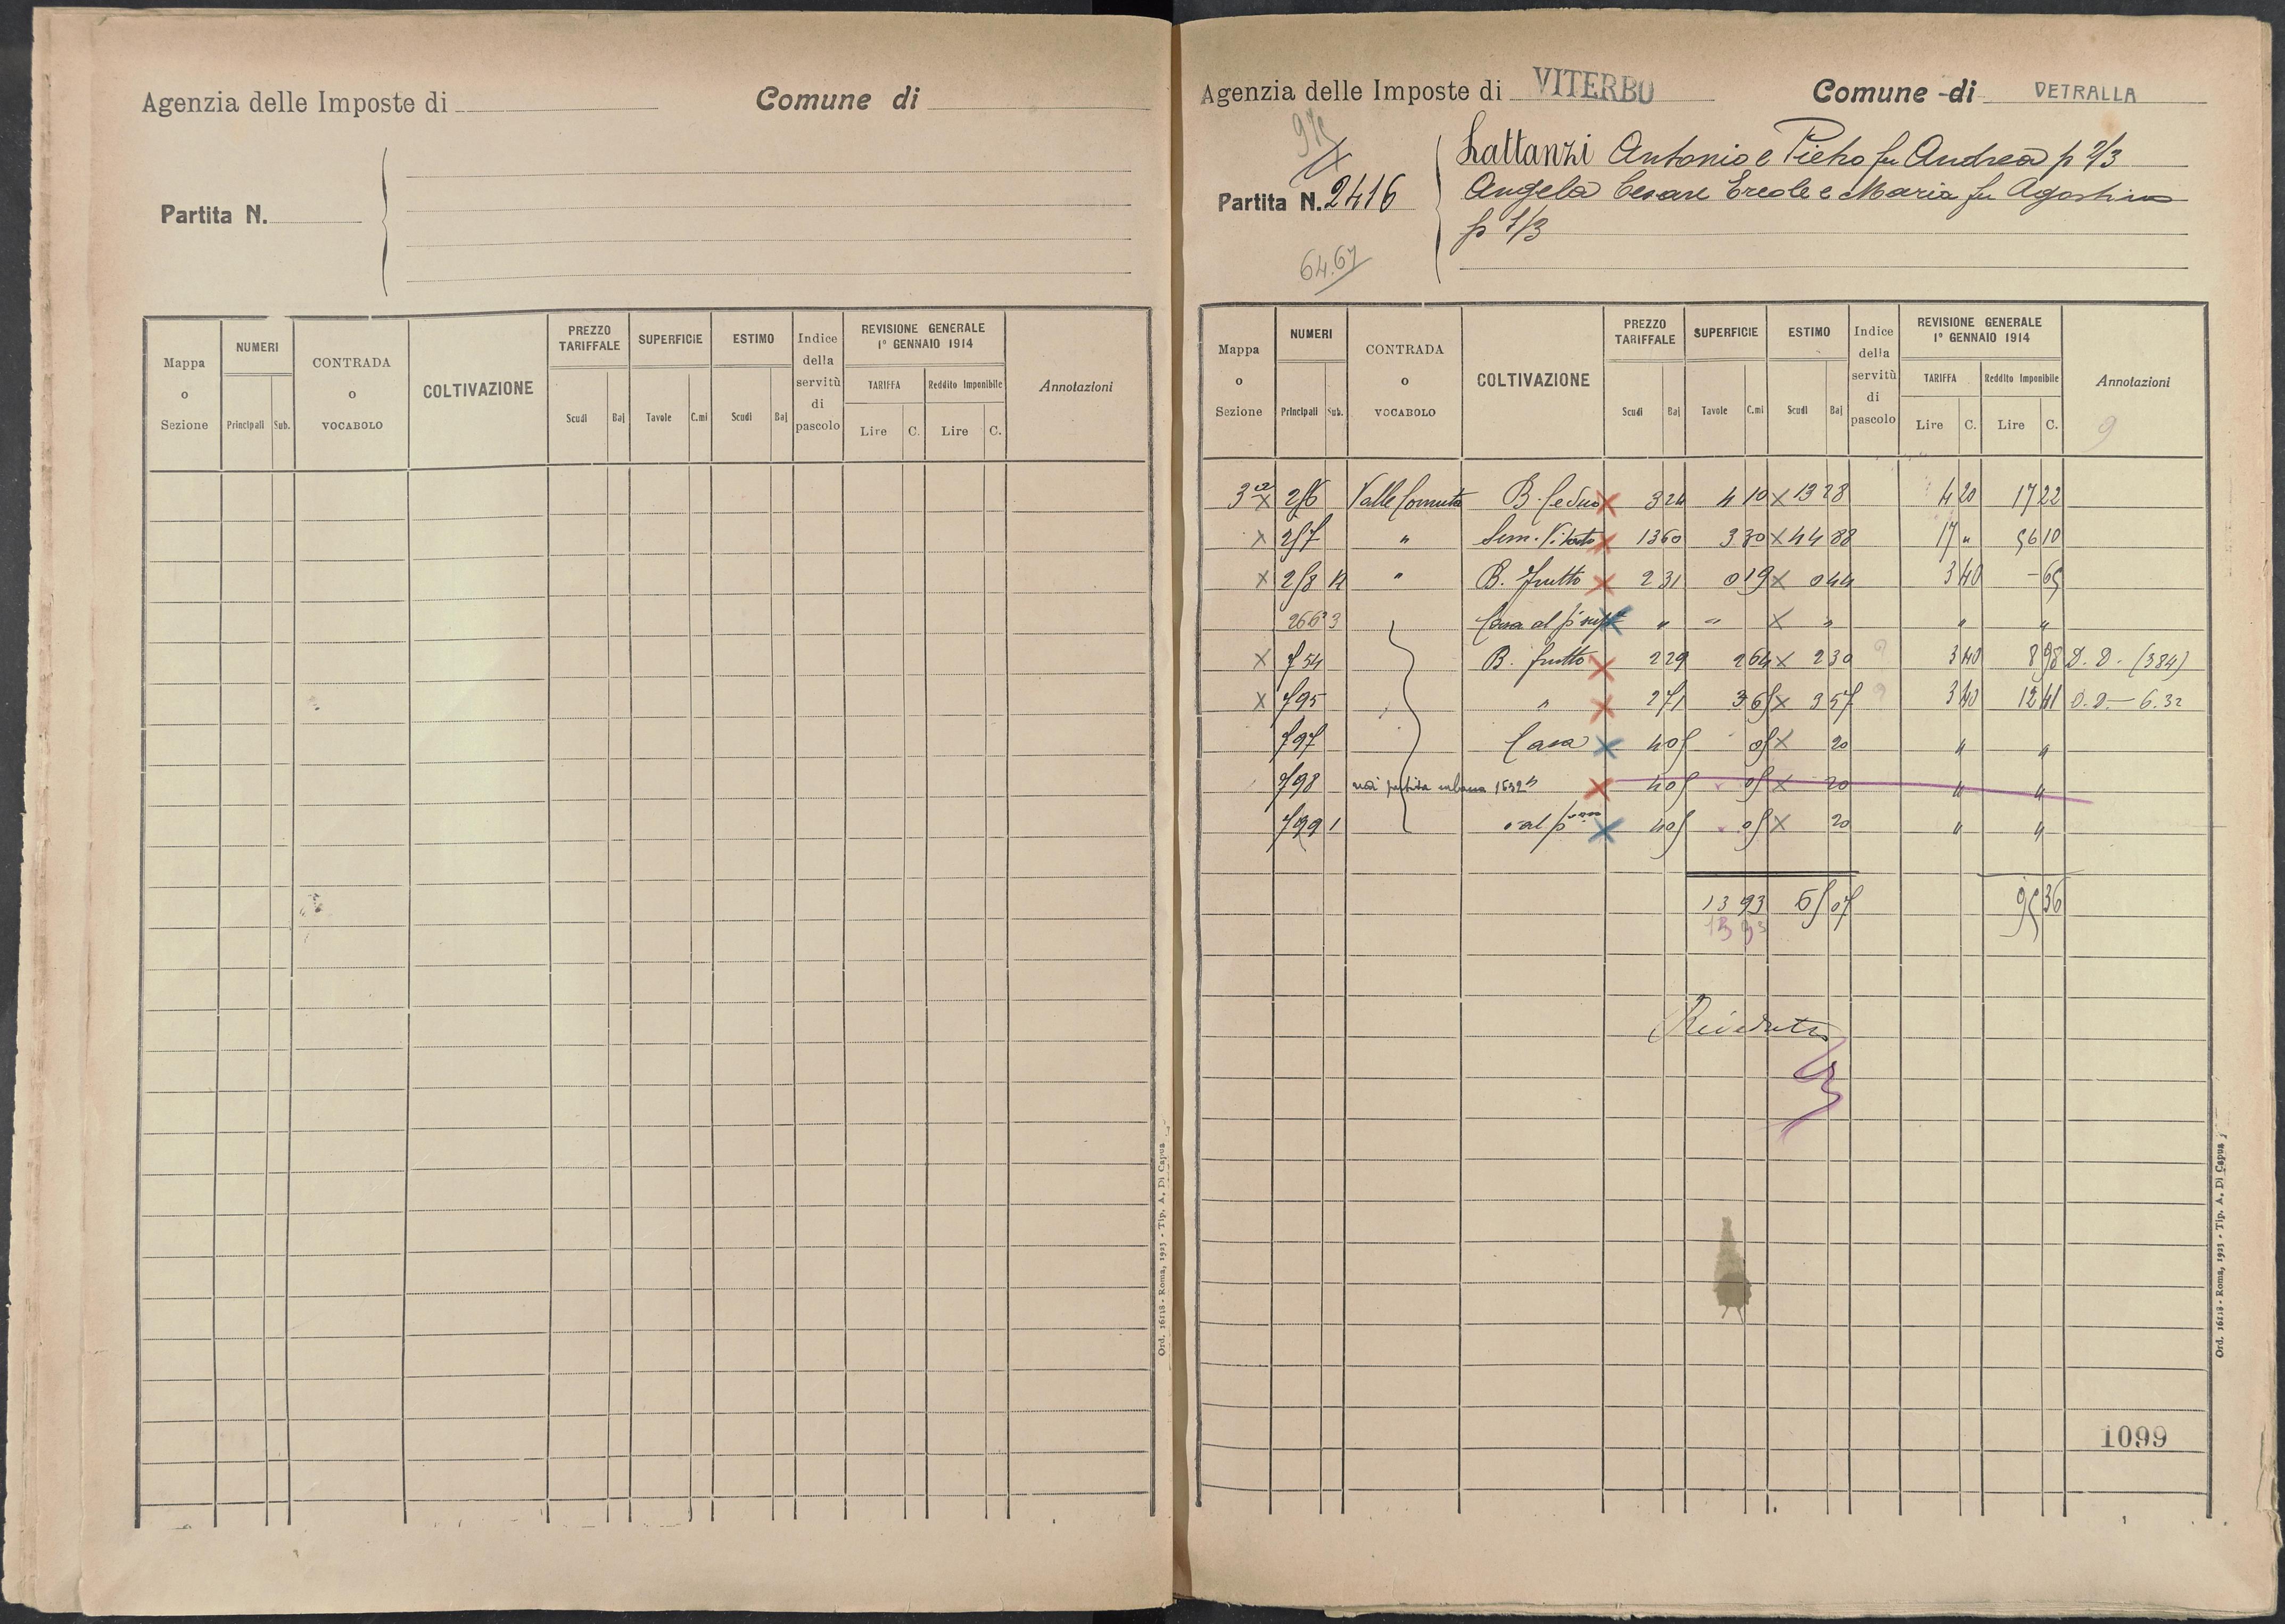 Agenzia delle Imposte di
Comune di
Partita N.
Mappa o Sezione
NUMERI
Principali Sub.
CONTRADA o VOCABOLO
COLTIVAZIONE
PREZZO TARIFFALE
Scudi Baj
SUPERFICIE
Tavole C.mi
ESTIMO
Scudi Baj
Indice della servitù di pascolo
REVISIONE GENERALE
1° GENNAIO 1914
TARIFFA Reddito Imponibile
Lire C. Lire C.
Annotazioni
Ord. 16118 - Roma, 1923 - Tip. A. Di Capua
Agenzia delle Imposte di VITERBO
Comune di VETRALLA
Partita N. 2416
64.67
Lattanzi Antonio e Pietro fu Andrea p 2/3
Angela Cesare Ercole e Maria fu Agostino
p 1/3
Mappa o Sezione
NUMERI
Principali Sub.
CONTRADA o VOCABOLO
COLTIVAZIONE
PREZZO TARIFFALE
Scudi Baj
SUPERFICIE
Tavole C.mi
ESTIMO
Scudi Baj
Indice della servitù di pascolo
REVISIONE GENERALE
1° GENNAIO 1914
TARIFFA Reddito Imponibile
Lire C. Lire C.
Annotazioni
9
3 x 256 Valle B. Ceduo x 3 24 4 10 x 13 28 4 20 17 22
x 257 " Sem. Vitato x 13 60 3 30 x 44 88 17 " 56 10
x 258 " B. frutto x 2 31 0 19 x 0 44 3 40 - 65
2663 3 Casa al p x " " x " " "
x 754 B. frutto x 2 29 2 64 x 2 30 9 3 40 8 98 D. D. (384)
x 795 " x 2 71 3 65 x 3 57 9 3 40 12 41 D. D. - 6.32
797 Casa x 40 5 05 x 20 " "
798 partita urbana x 40 5 05 x 20 " "
799 1 al p x 40 5 05 x 20 " "
13 93 65 07 95 36
13 93
Riveduta
1099
Ord. 16118 - Roma, 1923 - Tip. A. Di Capua